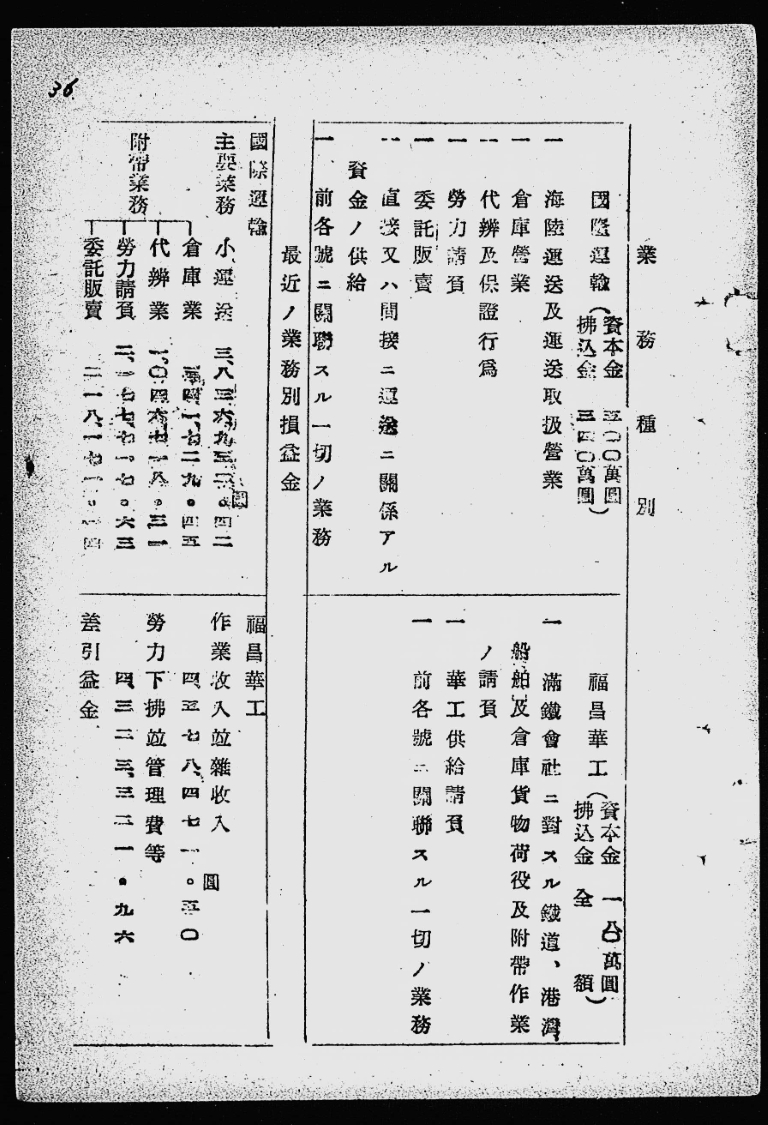 36
業務種別
國際運輸(資本金 五〇〇萬圓
拂込金 三四〇萬圓)
一 海陸運送及運送取扱營業
一 倉庫營業
一 代辨及保證行爲
一 勞力請負
一 委託販賣
一 直接又ハ間接ニ運送ニ關係アル
資金ノ供給
一 前各號ニ關聯スル一切ノ業務
福昌華工(資本金 一八〇萬圓
拂込金 全額)
一 滿鐵會社ニ對スル鐵道、港灣、
船舶及倉庫貨物荷役及附帶作業
ノ請負
一 華工供給請負
一 前各號ニ關聯スル一切ノ業務
最近ノ業務別損益金
國際運輸
主要業務 小運送 三、八三六、九五二。四二
圓
倉庫業 一、七二九。四五
附帶業務 代辨業 一、〇四六、七一八。三一
勞力請負 二、一七七、七一七。六三
委託販賣 二一八、一七一。一四
福昌華工
作業收入竝雜收入
圓
四、五七八、四七一。五〇
勞力下拂竝管理費等
四、三二三、三二一。九六
差引益金